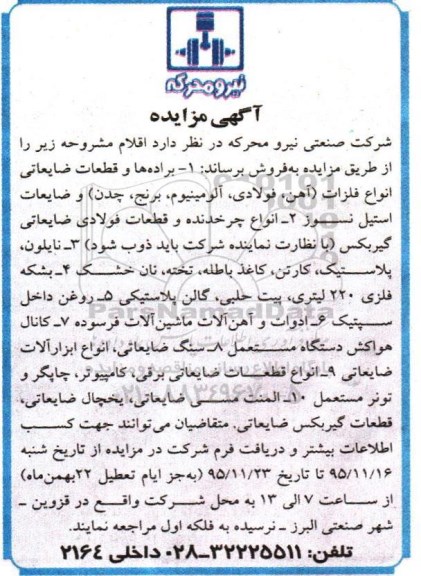 نیرومحرکه
آگهی مزایده
شرکت صنعتی نیرو محرکه در نظر دارد اقلام مشروحه زیر را
از طریق مزایده به‌فروش برساند: ۱- براده‌ها و قطعات ضایعاتی
انواع فلزات (آهن، فولادی، آلومینیوم، برنج، چدن) و ضایعات
استیل نسوز ۲ـ انواع چرخدنده و قطعات فولادی ضایعاتی
گیربکس (با نظارت نماینده شرکت باید ذوب شود) ۳ـ نایلون،
پلاستیک، کارتن، کاغذ باطله، تخته، نان خشک ۴ـ بشکه
فلزی ۲۲۰ لیتری، پیت حلبی، گالن پلاستیکی ۵ـ روغن داخل
سپتیک ۶ـ ادوات و آهن‌آلات ماشین‌آلات فرسوده ۷ـ کانال
هواکش دستگاه مستعمل ۸ـ سنگ ضایعاتی، انواع ابزارآلات
ضایعاتی ۹ـ انواع قطعات ضایعاتی برقی، کامپیوتر، چاپگر و
تونر مستعمل ۱۰ـ المنت مسی ضایعاتی، یخچال ضایعاتی،
قطعات گیربکس ضایعاتی. متقاضیان می‌توانند جهت کسب
اطلاعات بیشتر و دریافت فرم شرکت در مزایده از تاریخ شنبه
۹۵/۱۱/۱۶ تا تاریخ ۹۵/۱۱/۲۳ (به‌جز ایام تعطیل ۲۲بهمن‌ماه)
از ساعت ۷ الی ۱۳ به محل شرکت واقع در قزوین ـ
شهر صنعتی البرز ـ نرسیده به فلکه اول مراجعه نمایند.
تلفن: ۳۲۲۲۵۵۱۱-۰۲۸ داخلی ۲۱۶۴
ParsNamadData